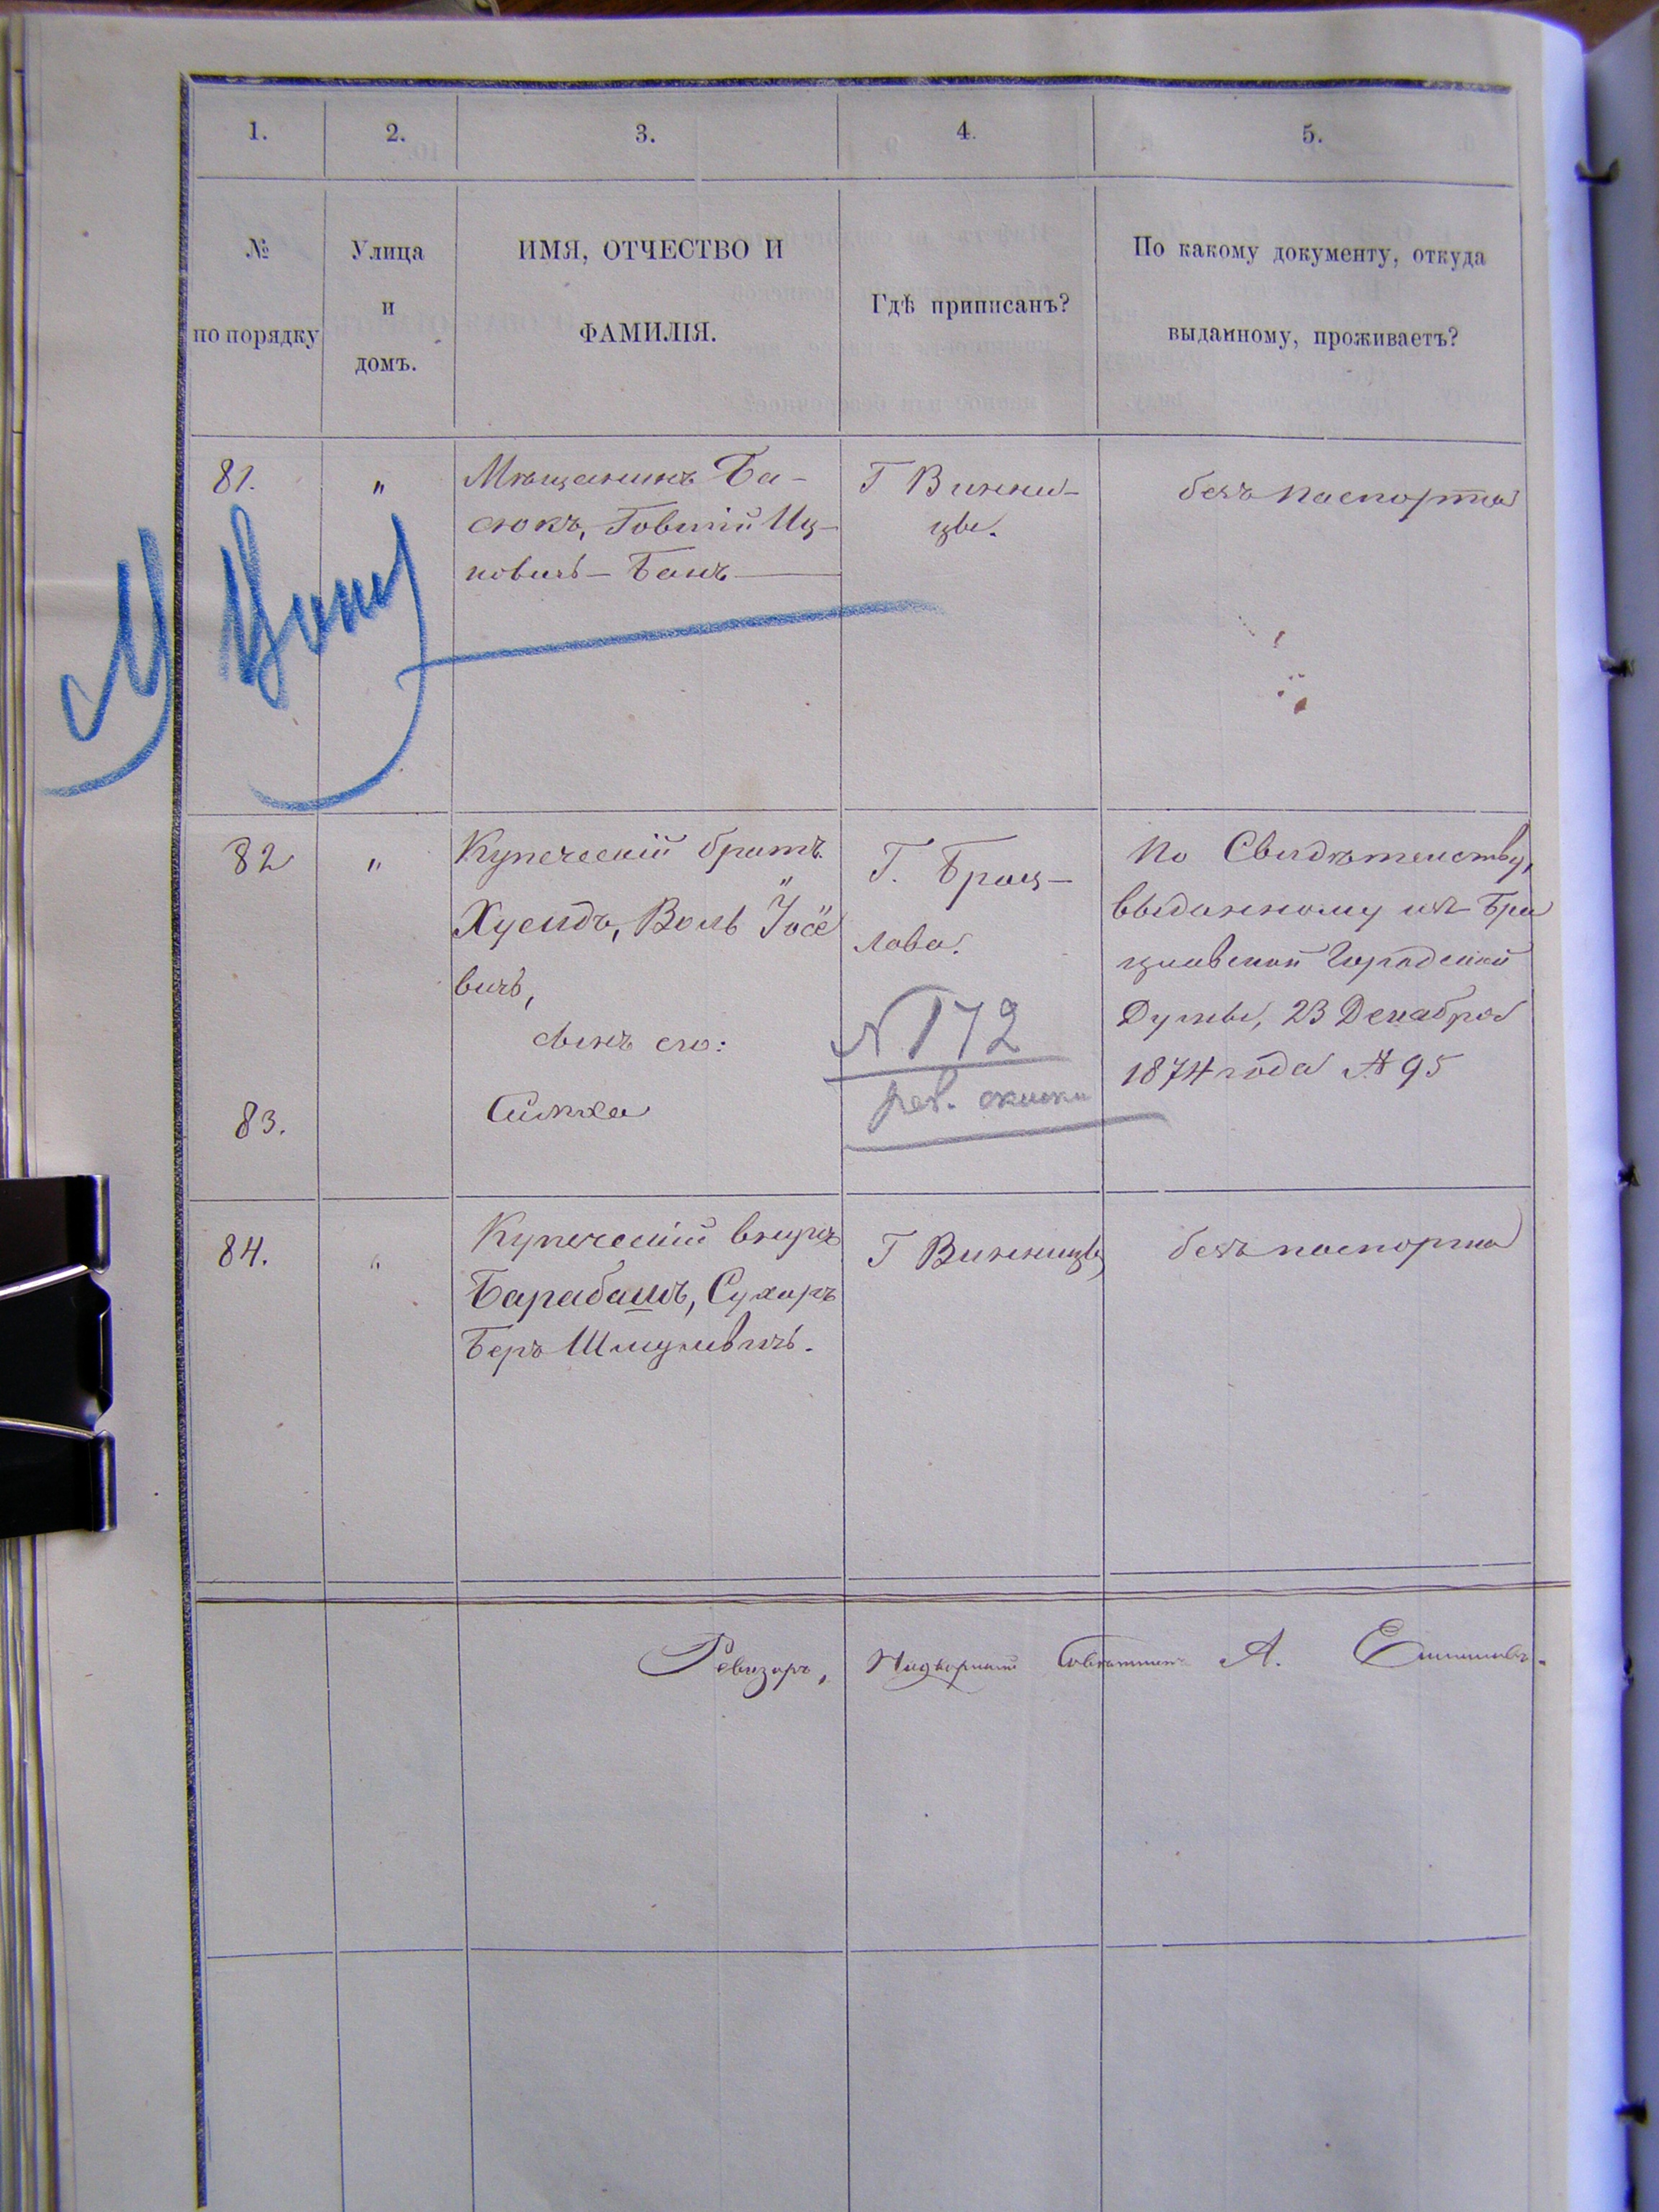 1. 2. 3. 4. 5.
№ по порядку
Улица и домъ.
ИМЯ, ОТЧЕСТВО И
ФАМИЛІЯ.
Гдѣ приписанъ?
По какому документу, откуда
выданному, проживаетъ?
81. " Мѣщанинъ Ба-
сюкъ, Иц-
ковичъ –
Г Винни-
цѣ.
безъ паспорта
82 " Купеческій братъ
Хусидъ, Воль Іосе
вичъ,
сынъ его:
83. Симха
Г. Брац-
лава.
№ 172
рев. сказки
По Свидѣтельству,
выданному изъ Бра
цлавской Городской
Думы, 23 Декабря
1874 года № 95
84. " Купеческій внукъ
Барабашъ, Сухаръ
Беръ Шмулевичъ.
Г Винницѣ
безъ паспорта
Ревизоръ, Надворный Совѣтникъ А.